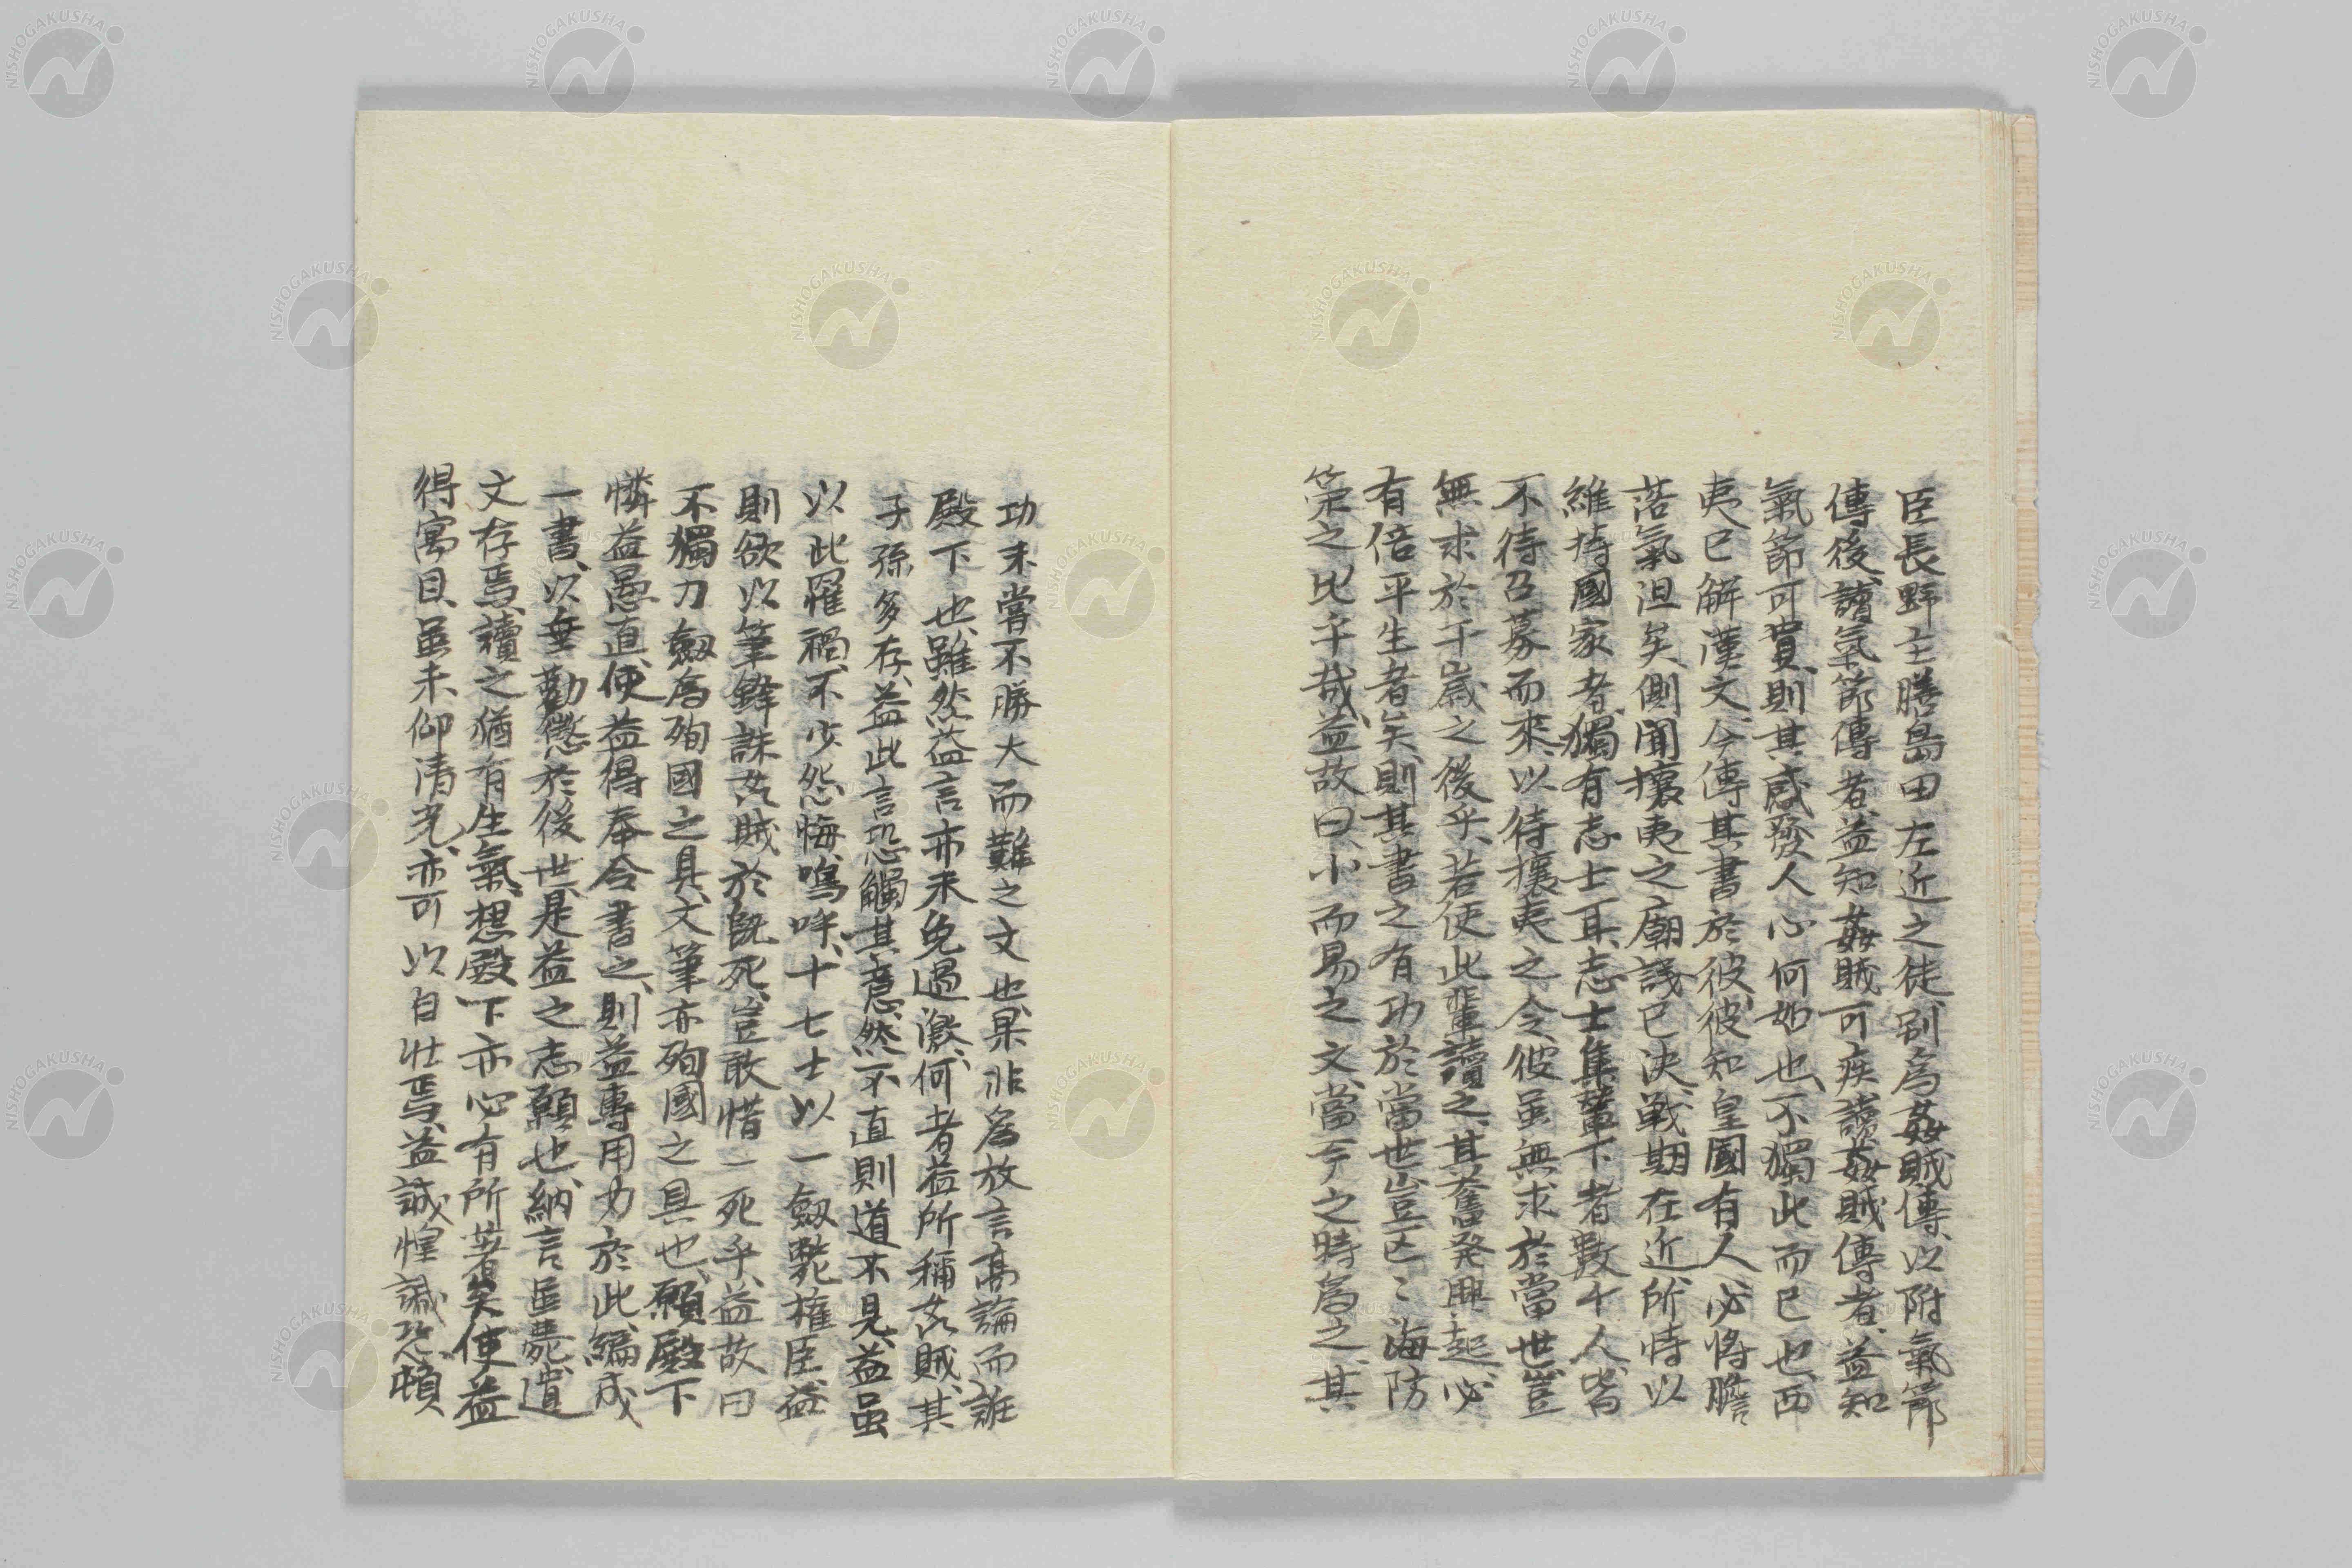 臣長野主膳島田左近之徒、別為姦賊傳、以附氣節
傳後、讀氣節傳者、益知姦賊可疾、讀姦賊傳者、益知
氣節可貴、則其感發人心何如也、不獨此而已也、西
夷已解漢文、今傳其書於彼、彼知皇國有人、必將膽
落氣沮矣、側聞攘夷之廟議已決、戰期在近、所恃以
維持國家者、獨有志士耳、志士集輦下者數千人、皆
不待召募而來、以待攘夷之令、彼虽無求於當世、豈
無求於千歲之後乎、若使此輩讀之、其奮発興起、必
有倍平生者矣、則其書之有功於當世、豈区〻海防
策之比乎哉、益故曰、小而易之文、當今之時為之、其
功未嘗不勝大而難之文也、果非為放言高論而誰
殿下也、雖然益言亦未免過激、何者益所稱姦賊、其
子孫多存、益此言恐觸其意、然不直則道不見、益虽
以此罹禍、不少怨悔、嗚呼、十七士以一劔斃權臣、益
則欲以筆鋒誅姦賊於既死、豈敢惜一死乎、益故曰
不獨刀劔為殉國之具、文筆亦殉國之具也、願殿下
憐益愚直、使益得奉令書之、則益專用力於此、編成
一書、以垂勸懲於後世、是益之志願也、納言虽薨、遺
文存焉、讀之猶有生氣、想殿下亦心有所著矣、使益
得寓目、虽未仰清光、亦可以自壮焉、益誠惶誠恐、頓